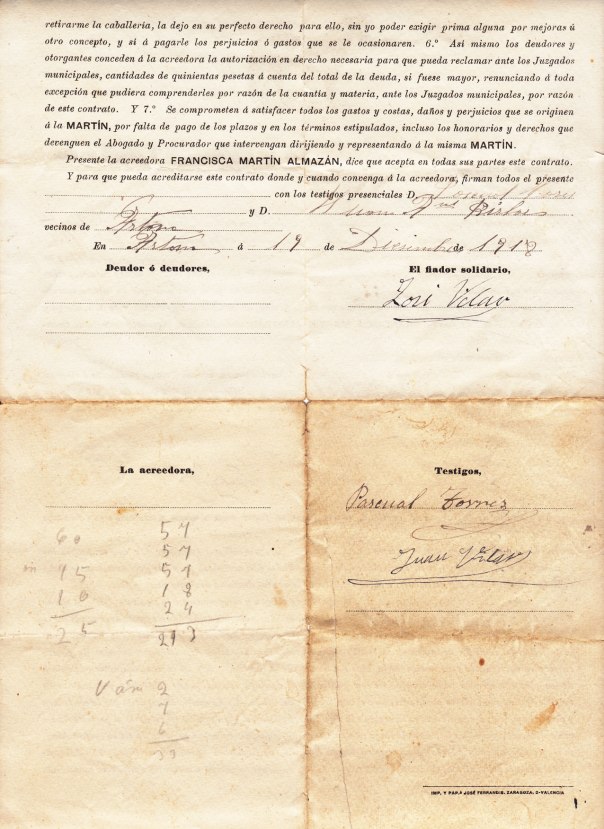 retirarme la caballería, la dejo en su perfecto derecho para ello, sin yo poder exigir prima alguna por mejoras ú
otro concepto, y sí á pagarle los perjuicios ó gastos que se le ocasionaren. 6.º Así mismo los deudores y
otorgantes conceden á la acreedora la autorización en derecho necesaria para que pueda reclamar ante los Juzgados
municipales, cantidades de quinientas pesetas á cuenta del total de la deuda, si fuese mayor, renunciando á toda
excepción que pudiera comprenderles por razón de la cuantía y materia, ante los Juzgados municipales, por razón
de este contrato. Y 7.º Se comprometen á satisfacer todos los gastos y costas, daños y perjuicios que se originen
á la MARTÍN, por falta de pago de los plazos y en los términos estipulados, incluso los honorarios y derechos que
devenguen el Abogado y Procurador que intervengan dirijiendo y representando á la misma MARTÍN.
Presente la acreedora FRANCISCA MARTÍN ALMAZÁN, dice que acepta en todas sus partes este contrato.
Y para que pueda acreditarse este contrato donde y cuando convenga á la acreedora, firman todos el presente
con los testigos presenciales D.
y D. Juan
vecinos de Artana
En Artana á 19 de Diciembre de 1918
Deudor ó deudores,
El fiador solidario,
La acreedora,
Testigos,
Pascual Torres
Juan Vilar
60
15
10
25
57
57
57
18
24
213
2
7
6
33
IMP. Y PAP.A JOSÉ FERRANDIS, ZARAGOZA, 5-VALENCIA